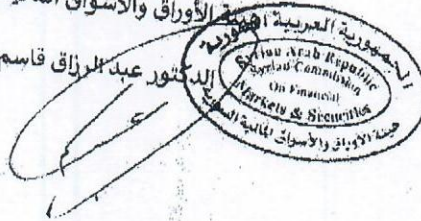 هيئة الأوراق والأسواق
الدكتور عبد الرزاق قاسم
الجمهورية العربية السورية
Syrian Arab Republic
Syrian Commission
On Financial
Markets & Securities
هيئة الأوراق والأسواق المالية السورية